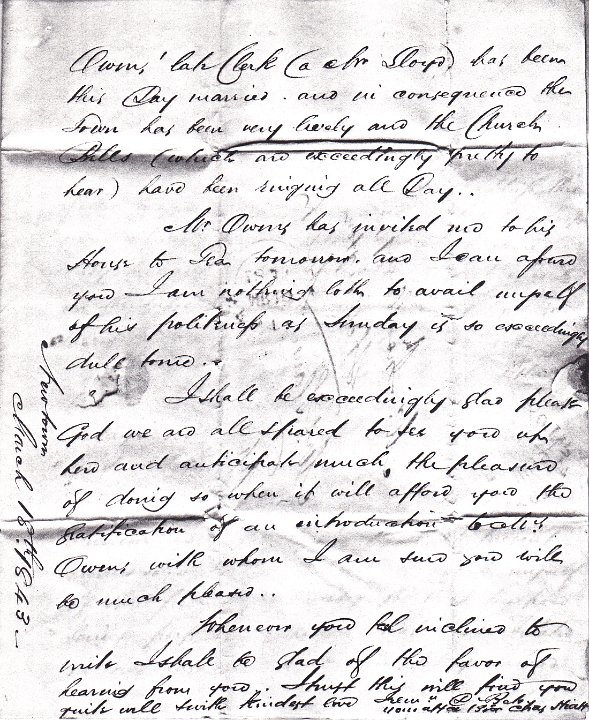 Owens' late Clerk (a Mr Lloyd) has been
this Day married. and in consequence the
Town has been very lively and the Church
Bells (which are exceedingly pretty to
hear) have been ringing all Day..
Mr Owens has invited me to his
House to Tea tomorrow. and I can assure
you I am nothing loth to avail myself
of his politeness as Sunday is so exceedingly
dull to me..
I shall be exceedingly glad please
God we are all spared to see you up
here and anticipate much, the pleasure
of doing so when it will afford you the
gratification of an introduction to Mr
Owens with whom I am sure you will
be much pleased..
Whenever you feel inclined to
write I shall be glad of the favor of
hearing from you. I trust this will find you
quite well & with kindest love
your affte Chas
Newtown
March 18th, 1843.